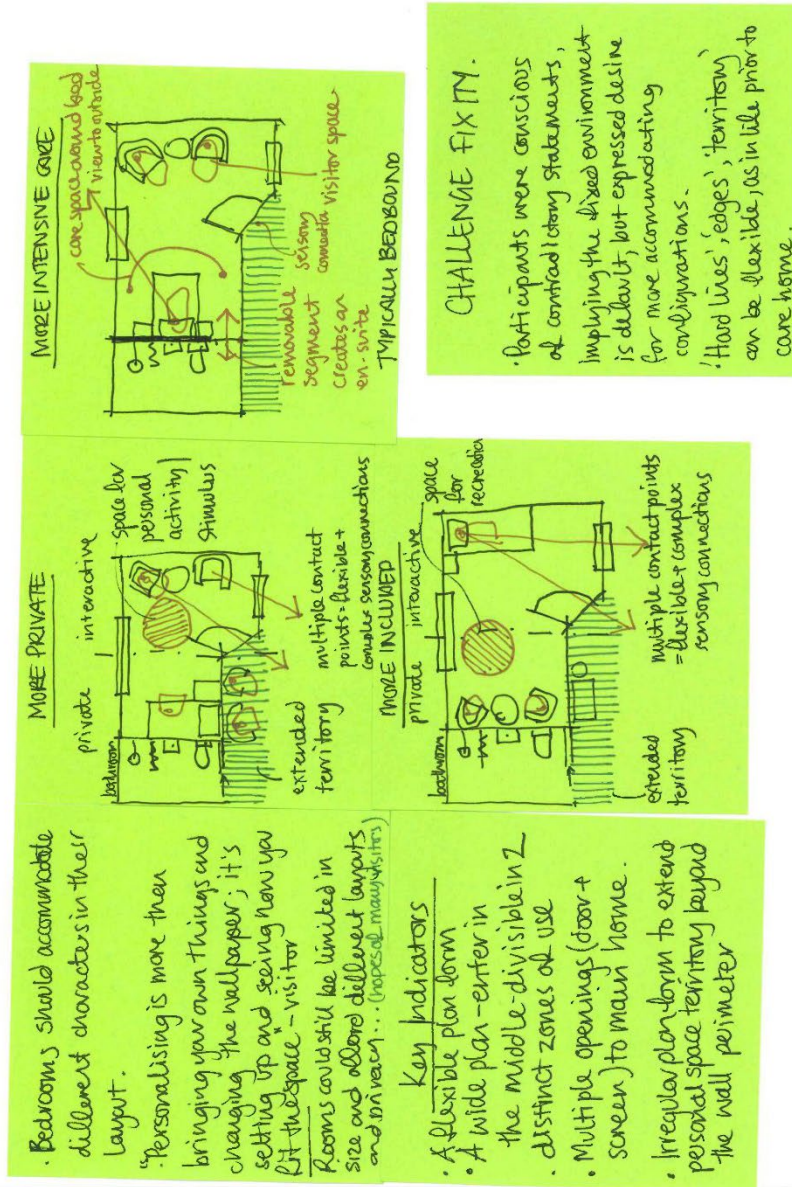 · Bedrooms should accommodate
different characters in their
layout.
"Personalising is more than
bringing your own things and
changing the wallpaper; it's
setting up and seeing how you
fit the space" - visitor
Rooms could still be limited in
size and afford different layouts
and privacy... (hopes of many visitors)
Key Indicators
· A flexible plan form
· A wide plan - enter in
the middle - divisible in 2
· distinct zones of use
· Multiple openings (door +
screen) to main home.
· Irregular plan form to extend
personal space territory beyond
the wall perimeter
MORE PRIVATE
private
interactive
bathroom
space for
personal
activity /
stimulus
extended
territory
multiple contact
points = flexible +
complex sensory connections
MORE INCLUDED
private
interactive
bathroom
space
for
recreation
extended
territory
multiple contact points
= flexible + complex
sensory connections
MORE INTENSIVE CARE
care space around bed
view to outside
removable
segment
creates an
en-suite
sensory
connection
visitor space
TYPICALLY BEDBOUND
CHALLENGE FIXITY.
· Participants were conscious
of contradictory statements,
implying the fixed environment
is default, but expressed desire
for more accommodating
configurations.
· 'Hard lines', 'edges', 'territory'
can be flexible, as in life prior to
care home.